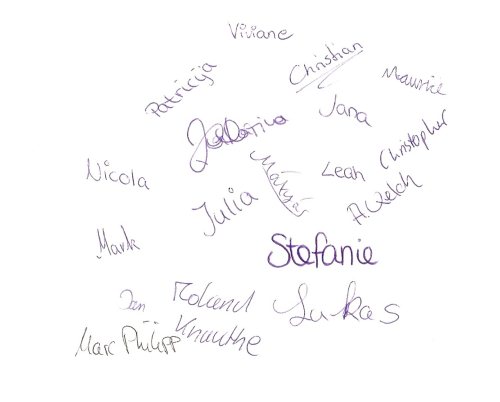 Viviane
Christian
Maurice
Patricija
Jana
Christopher
Mátyás
Leah
Nicola
Julia
A. Welch
Mark
Stefanie
Jan
Roland
Knauthe
Lukas
Marc Philipp